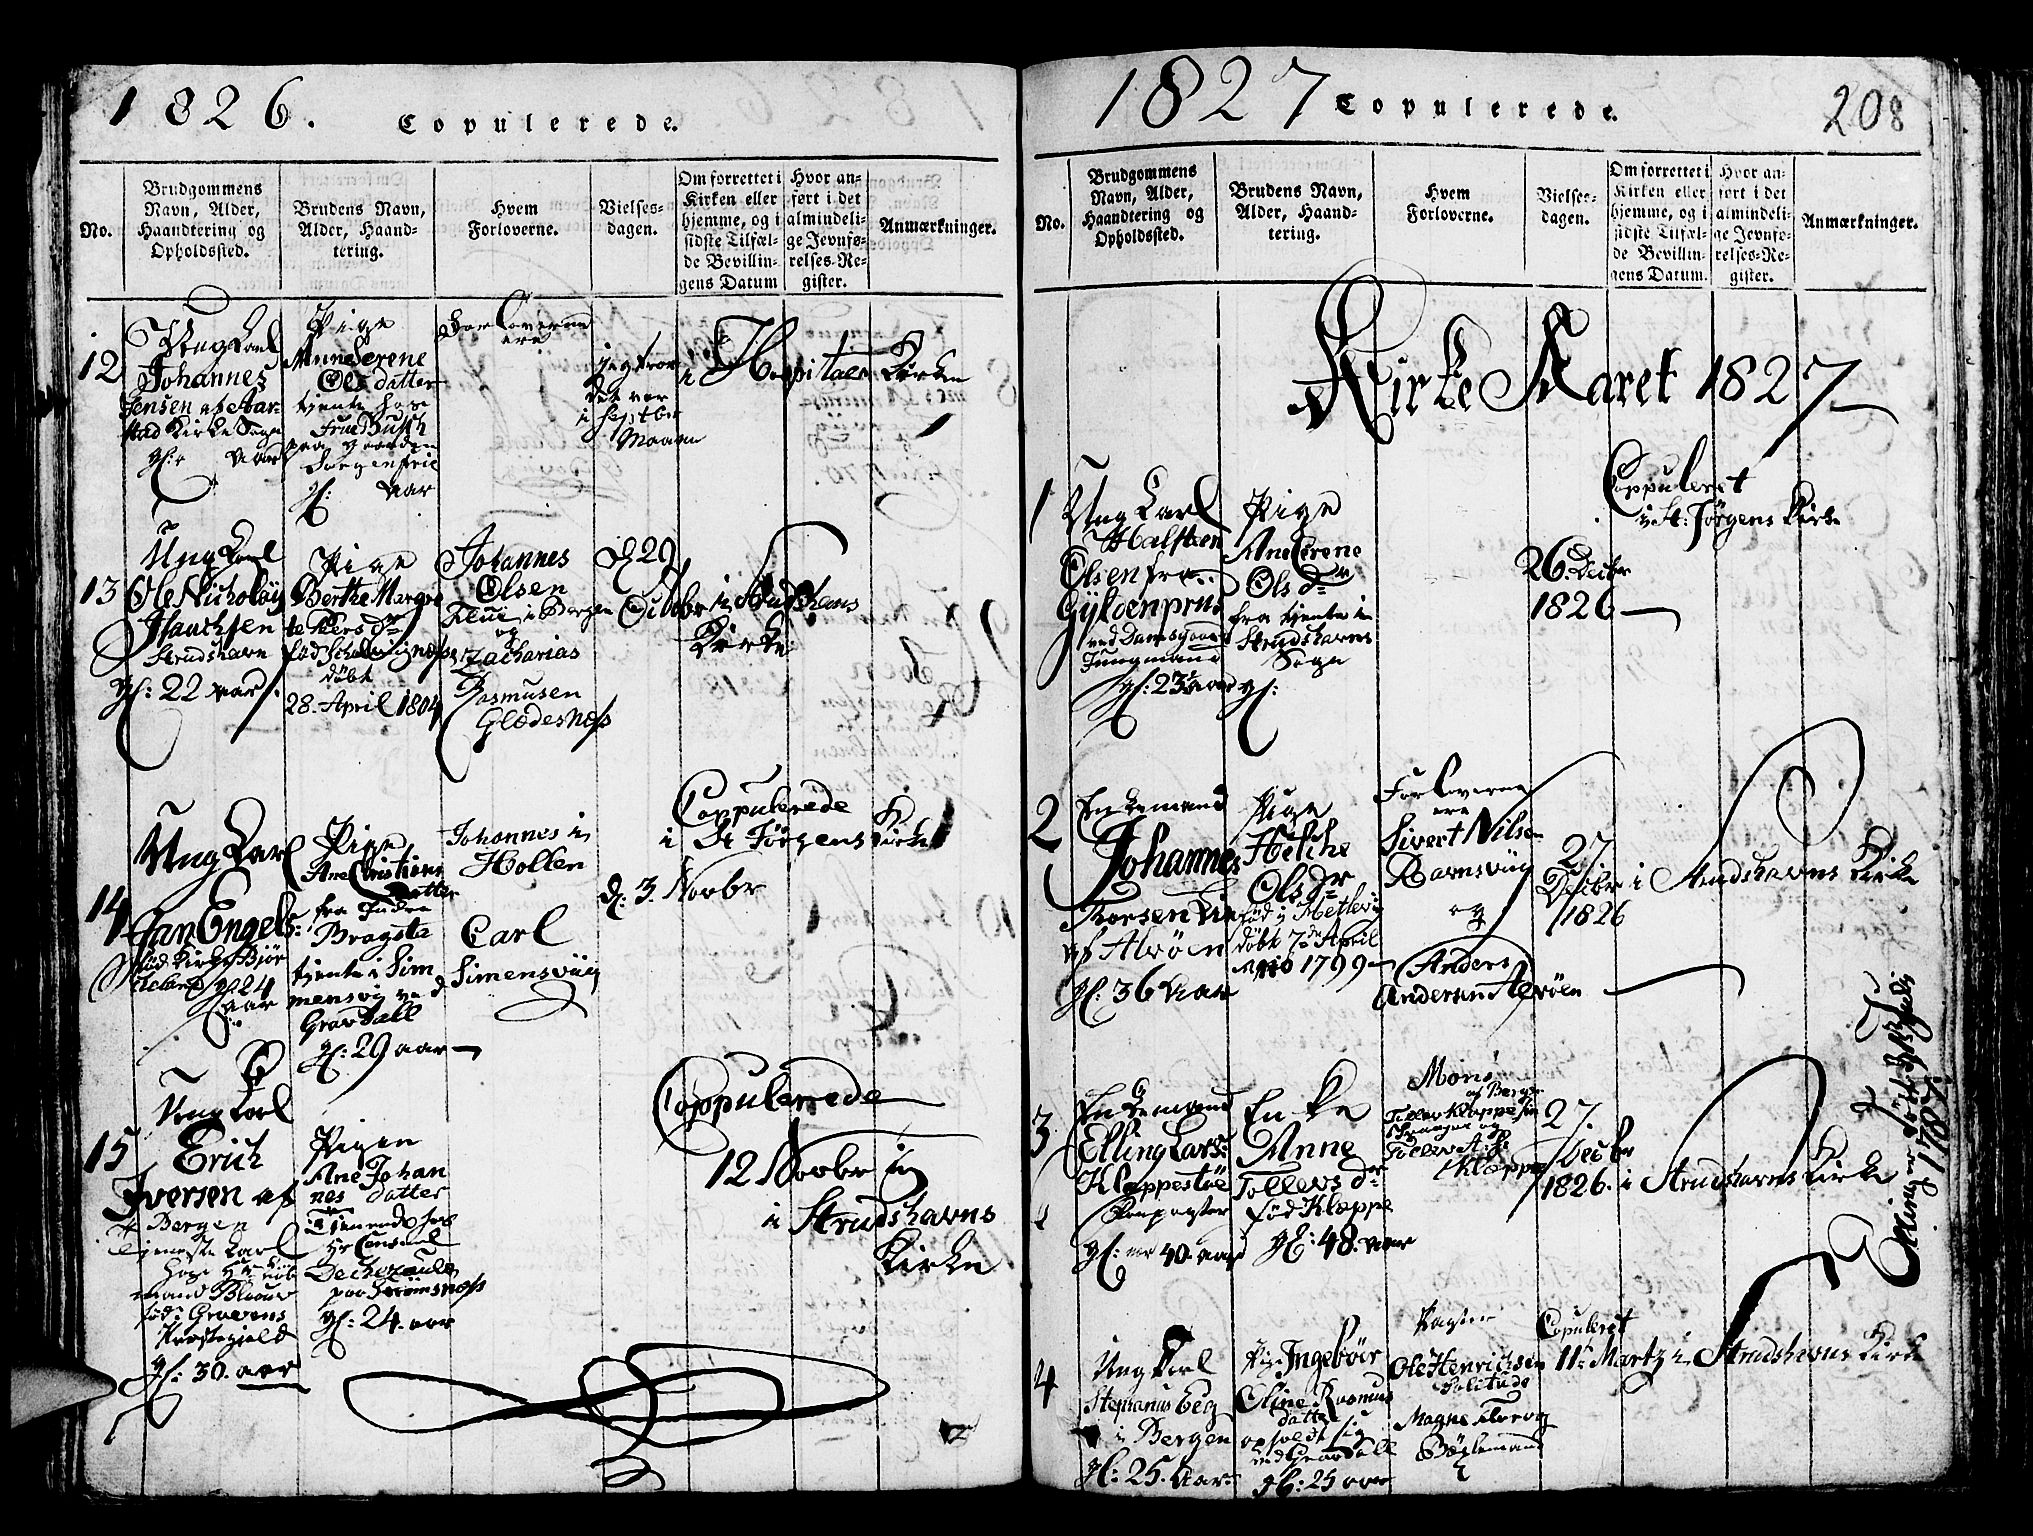 1826.
Copulerede.
No.
Brudgommens
Navn, Alder,
Haandtering og
Opholdssted.
Brudens Navn,
Alder, Haand-
tering.
Hvem
Forloverne.
Vielses-
dagen.
Om forrettet i
Kirken eller
hjemme, og i
sidste Tilfæl-
de Bevillin-
gens Datum
Hvor an-
ført i det
almindeli-
ge Jevnfø-
relses-Re-
gister.
Anmærkninger.
12
Ung Karl
Johannes
Jensen af Aar-
stad Kirke Sogn
gl: aar
Pige
Anne Serene
Ols datter
tjente hos
paa gaarden
Sorgenfrie
gl: aar
Forloverne
ere
jeg tror
det var
i Septbr
Maaned
i Hospitals Kirken
13
Ung Karl
Ole Nicholay
Isachsen
Strudshavn
gl: 22 aar.
Pige
Berthe Margre
te Peers dr
født
døbt
28. April 1804
Johannes
Olsen
i Bergen
og
Zacharias
Rasmusen
Glædesnæss
d 29
Octbr i Strudshavns
Kirke
14
Ung Karl
Jan Engels:
født Kirke Bjør
gl 24
aar
Pige
Ane Christians
datter
fra Indre
Bragsta
tjente i Sim
mensvig ved
Gravdall
gl: 29 aar
Johannes i
Holten
Carl
Simensviig
d: 3. Novbr
Coppulerede
i St Jørgens Kirke
15
Ung Karl
Erich
Iversen af
Bergen
Tjeneste Karl
hos Hr Kiøb
mand
fød i Gravens
Præstegield
gl: 30. aar
Pigen
Ane Johan
nes datter
Tienende hos
Hr Consul
paa Strømsnæss
gl: 24. aar
Coppulerede
12 Novbr
i Strudshavns
Kirke
1827
Copulerede.
208
No.
Brudgommens
Navn, Alder,
Haandtering og
Opholdssted.
Brudens Navn,
Alder, Haand-
tering.
Hvem
Forloverne.
Vielses-
dagen.
Om forrettet i
Kirken eller
hjemme, og i
sidste Tilfæl-
de Bevillin-
gens Datum.
Hvor an-
ført i det
almindeli-
ge Jevnfø-
relses-Re-
gister.
Anmærkninger.
Kirke Aaret 1827
1
Ung Karl
Halsten
Olsen fra
Gyldenpriis
ved Damsgaard
Jungmand
gl: 23½ aar
Pige
Ane Serene
Ols dr
fra tjente i
Strudshavns
Sogn
gl:
26. Decbr
1826
Coppuleret
i St: Jørgens Kirke
2
Enkemand
Johannes
Thorsen
af Alvøen
gl: 36 Aar
Pige
Helche
Ols dr
fød i Hetlevig
døbt 7de April
1799
Forloverne
ere
Sivert Nilsen
Ravnsviig
og
Anders
Andersen Alvøen
27
Decbr
1826
i Strudshavns Kirke
3
Enkemand
Elling Lars:
Kleppestøe
gl: er 40. aar
Enke
Anne
Tollevs dr
fød Kleppe
gl: 48. aar
Mons
Tollev Kleppe
og
Kleppe
27.
Decbr
1826.
i Strudshavns Kirke
Elling er født
1781
4
Ung Karl
Stephanus Eeg
i Bergen
gl: 25. Aar
Pige Ingebør
Oline Rasmus
datter
opholdt sig
ved Gravdall
gl: 25 aar
Ole Henrichsen
Solitude
Magne
Bøxlemand
Copuleret
11te Martz
i Strudshavns Kirke